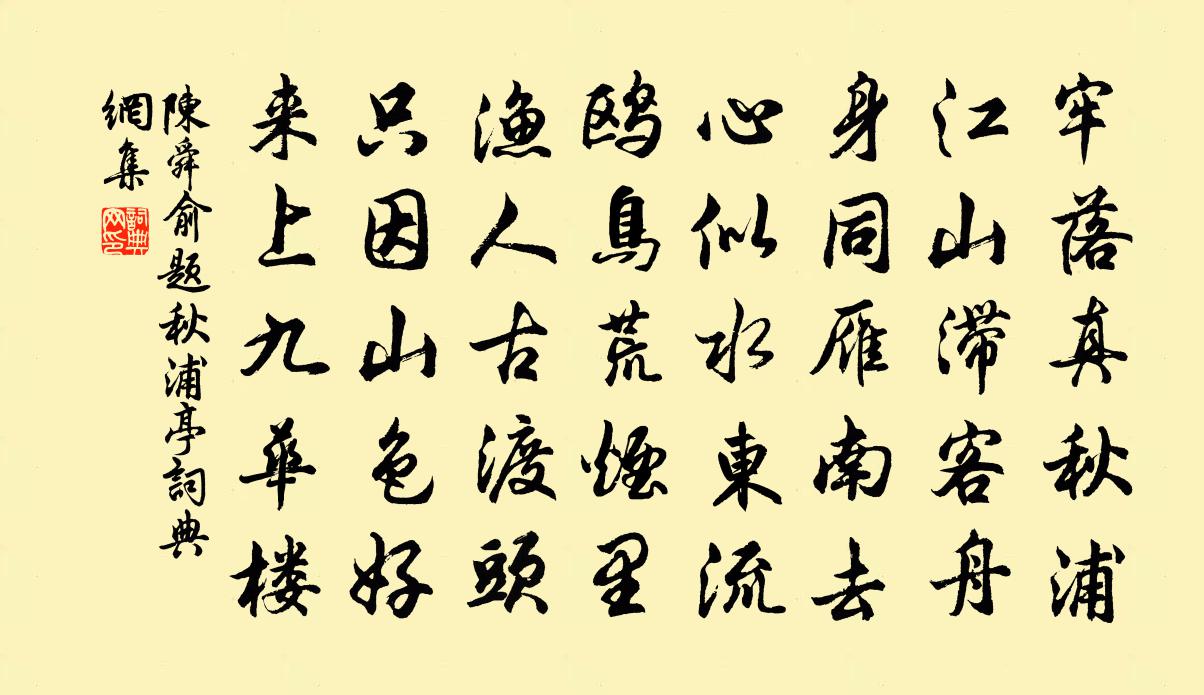 牢落真秋浦
江山滞客舟
身同雁南去
心似水東流
鸥鳥荒煙里
漁人古渡頭
只因山色好
来上九華楼
陳舜俞题秋浦亭詞典
網集
詞典
网印